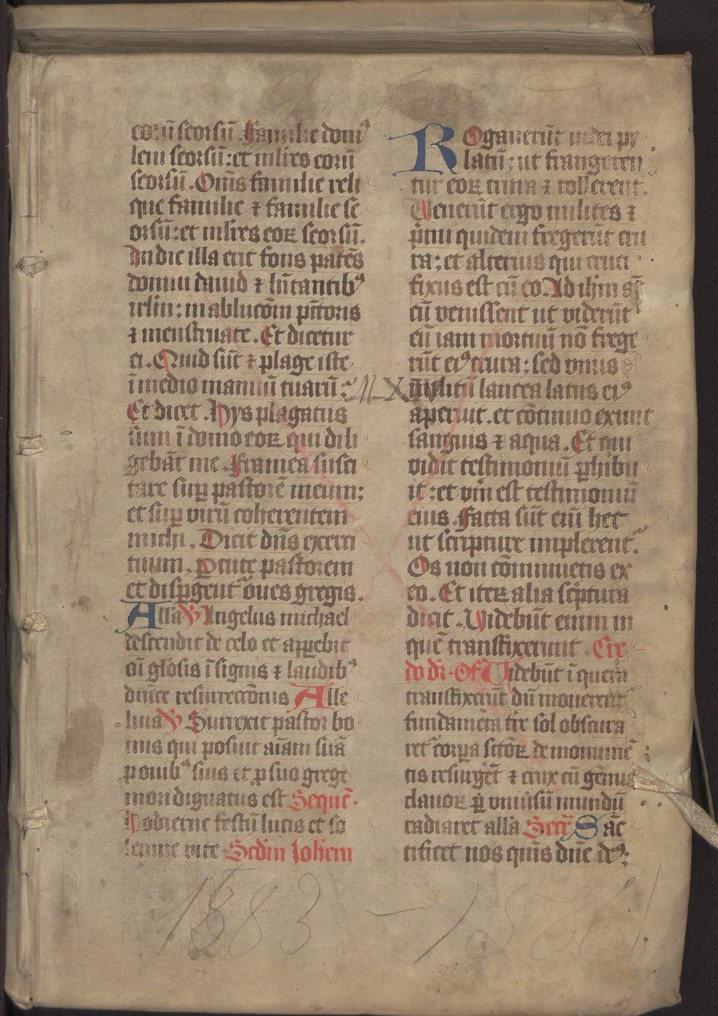 eorū seorsū. Familie domꝰ
leui seorsū: et mlɩ̄res eorū
seorsū. Om̄s familie reli
que familie ⁊ familie se
orsū: et mlɩ̄res eoꝝ seorsū.
In die illa erit fons patēs
domui dauid ⁊ hītantibꝫ
irl̄m: in ablucōm pctōris
⁊ menstruate. Et dicetur
ei. Quid sūt ⁊ plage iste
ī medio manuū tuarū:
Et dicet. Hys plagatus
sum ī domo eoꝝ qui dili
gebāt me. Framea susci
tare suꝑ pastorē meum:
et suꝑ virū coherentem
michi. Dicit dn̄s exerci
tuum. Ꝑcute pastorem
et disꝑgent᷑ oues gregis.
Alla V Angelus michael
descendit de celo et
glosis ī signis ⁊ laudibꝫ
diuīe resurreccōnis Alle
luia V Surrexit pastor bo
nus qui posuit aīam suā
ꝓ ouibꝫ suis et ꝓ suo grege
mori dignatus est Sequē.
Hodierne festū lucis et so
lenne vite Scdm Johēm
Rogauerūt iudei py
latū: ut frangeren
tur eoꝝ crura ⁊ tollerent᷑.
Venerūt ergo milites ⁊
p̄mi quidem fregerūt cru
ra: et alterius qui cruci
fixus est cū eo. Ad ih̄m aūt
cū venissent ut viderūt
eū iam mortuū nō frege
rūt eiꝰ crura: sed vnus
militū lancea latus eiꝰ
aperuit. et cōtinuo exiuit
sanguis ⁊ aqua. Et qui
vidit testimoniū ꝑhibu
it: et verū est testimoniū
eius. Facta sūt enī hec
ut scriptura implerent᷑.
Os non cōminuetis ex
eo. Et iteꝝ alia scptura
dicit. Videbūt enim in
quē transfixerunt. Cre
do dr̄. Off Videbūt ī quem
transfixerūt dū mouerent᷑
fundamēta tr̄e sol obscura
ret᷑ corpa sctōꝝ de monumē
tis resurgēt ⁊ crux cū genus
clauoꝝ ꝑ vniusū mundū
radiaret alla Secr̄ Sāc
tificet nos quīs dn̄e deꝰ:
1883 - 1